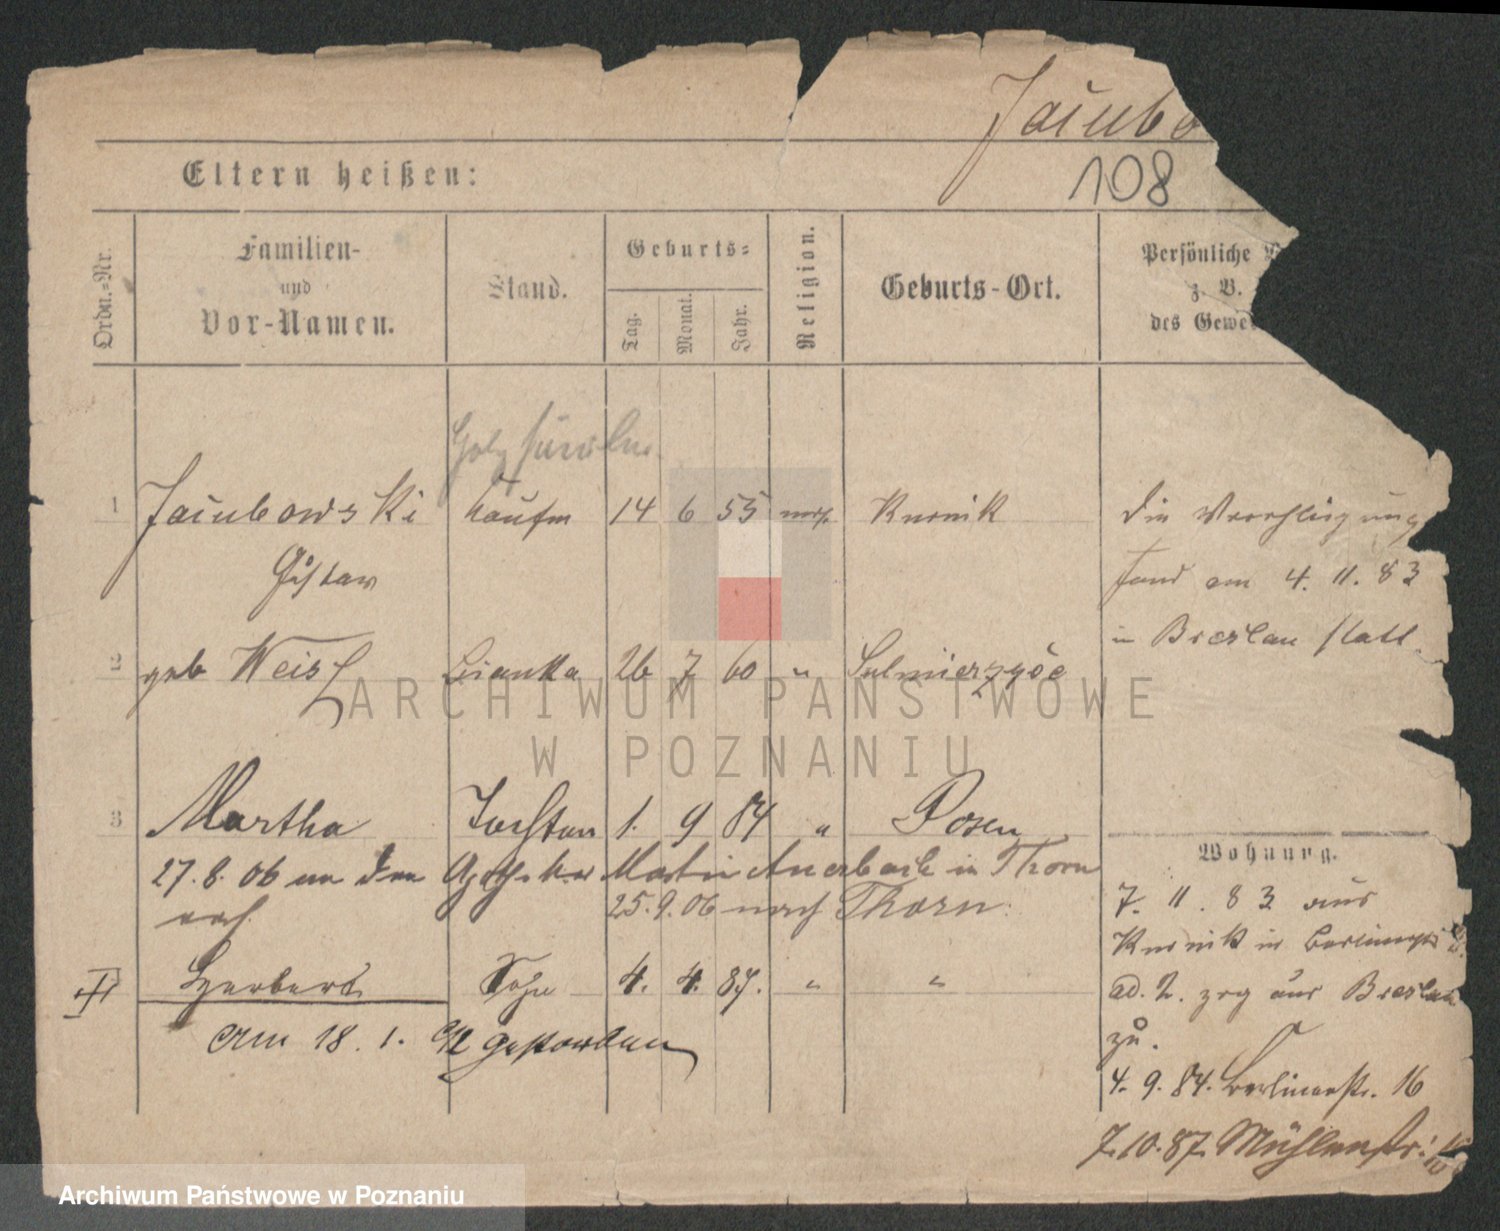 Jacubo
108
Eltern heißen:
Ordn.-Nr.
Familien-
und
Vor-Namen.
Stand.
Geburts-
Tag.
Monat.
Jahr.
Religion.
Geburts-Ort.
Persönliche
z. B.
des Gewe
1 Jacubowski Kaufm 14 6 55 mos. Kurnik
Gustav
Die Verehelichung
fand am 4. 11. 83
in Breslau statt.
2 geb Weiss Bianka 26 7 60 " Sulmierzyce
3 Martha Tochter 1. 9 84 " Posen
27.8.06 an den Apotheker Martin Auerbach in Thorn
verh. 25.9.06 nach Thorn.
Herbert Sohn 4. 4. 87. " "
Am 18. 1. 92 gestorben
Wohnung.
7. 11. 83 aus
Kurnik in
ad. 2. zog aus Breslau
zu.
4. 9. 84. Berlinerstr. 16
7.10.87. Mühlenstr.
ARCHIWUM PAŃSTWOWE
W POZNANIU
Archiwum Państwowe w Poznaniu